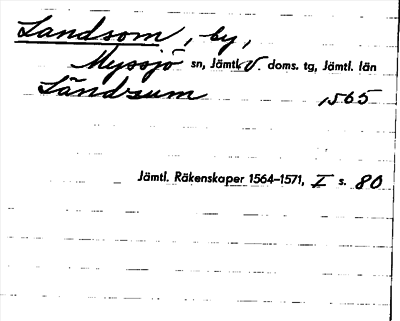 Landsom, by,
Myssjö sn, Jämtl. V. doms. tg, Jämtl. län
Ländsum 1565
Jämtl. Räkenskaper 1564–1571, I s. 80